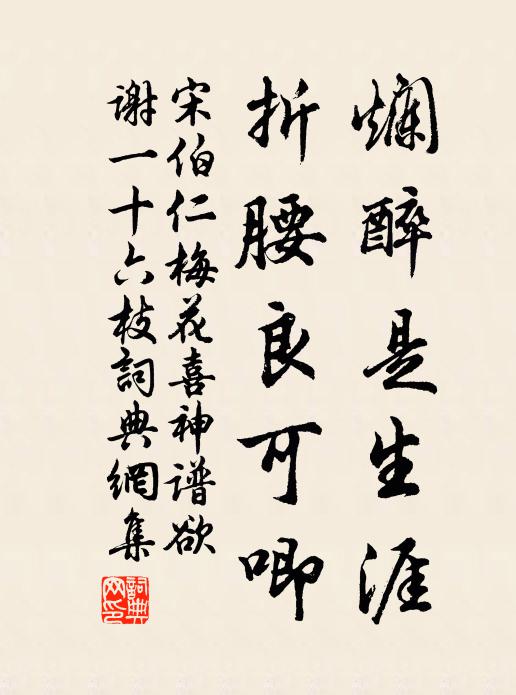 爛醉是生涯
折腰良可唧
宋伯仁梅花喜神谱欲
謝一十六枝詞典網集
詞典网印